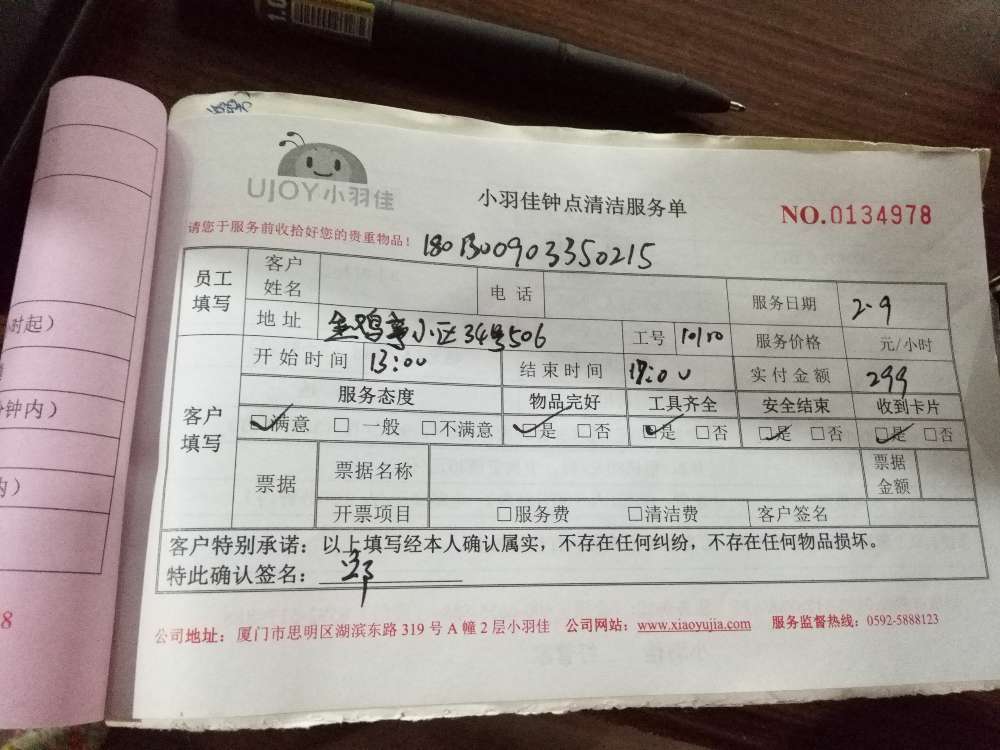 1.0
UJOY小羽佳
小羽佳钟点清洁服务单
NO.0134978
请您于服务前收拾好您的贵重物品！
1801300903350215
员工填写 客户姓名 电话 服务日期 2.9
地址 金鸡亭小区34号506 工号 10100 服务价格 元/小时
客户填写 开始时间 13:00 结束时间 17:00 实付金额 299
服务态度 物品完好 工具齐全 安全结束 收到卡片
☑满意 □一般 □不满意 ☑是 □否 ☑是 □否 ☑是 □否 ☑是 □否
票据 票据名称 票据金额
开票项目 □服务费 □清洁费 客户签名
客户特别承诺：以上填写经本人确认属实，不存在任何纠纷，不存在任何物品损坏。
特此确认签名：
公司地址：厦门市思明区湖滨东路319号A幢2层小羽佳 公司网站：www.xiaoyujia.com 服务监督热线：0592-5888123
时起）
钟内）
内）
8